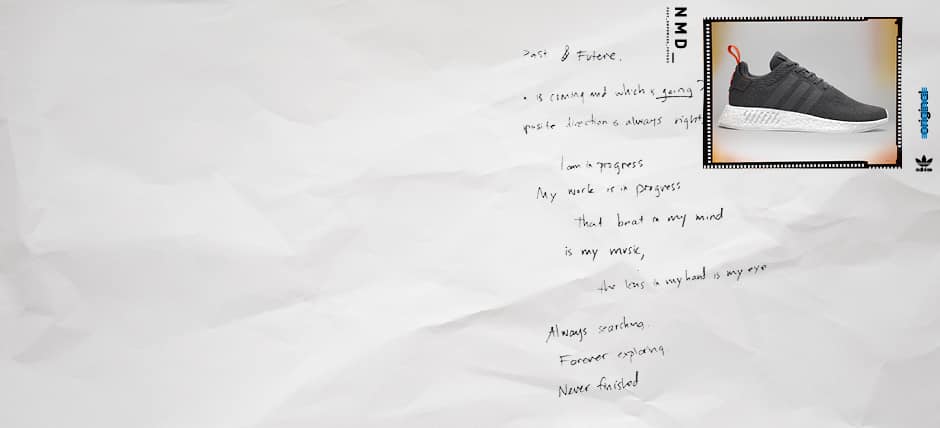 Past & Future.
is coming and which is going ?
posite direction is always right
I am in progress
My work is in progress
that beat in my mind
is my music,
the lens in my hand is my eye
Always searching.
Forever exploring
Never finished
NMD_
=originals=